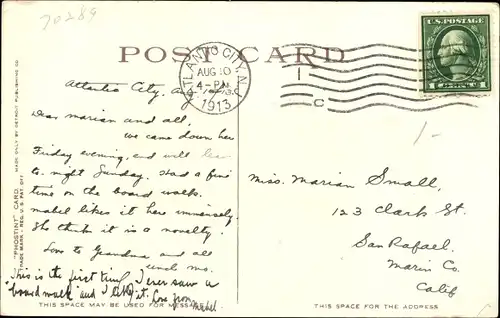 70289
POST CARD
ATLANTIC CITY, N.J.
AUG 10
4-PM
1913
1
C
U.S. POSTAGE
1 1
Atlantic City, Aug
Dear Marian and all,
we came down here
Friday evening, and will leave
to-night Sunday. Had a fine
time on the board walk.
Mabel likes it here immensely.
She thinks it is a novelty.
Love to Grandma and all
Uncl Mo.
This is the first time I ever saw a
"board walk" and I like it. Love from Mabel.
1-
Miss. Marian Small,
123 Clark St.
San Rafael.
Marin Co.
Calif
"PHOSTINT" CARD MADE ONLY BY DETROIT PUBLISHING CO.
TRADE MARK - REG. U.S. PAT. OFF.
THIS SPACE MAY BE USED FOR MESSAGE
THIS SPACE FOR THE ADDRESS